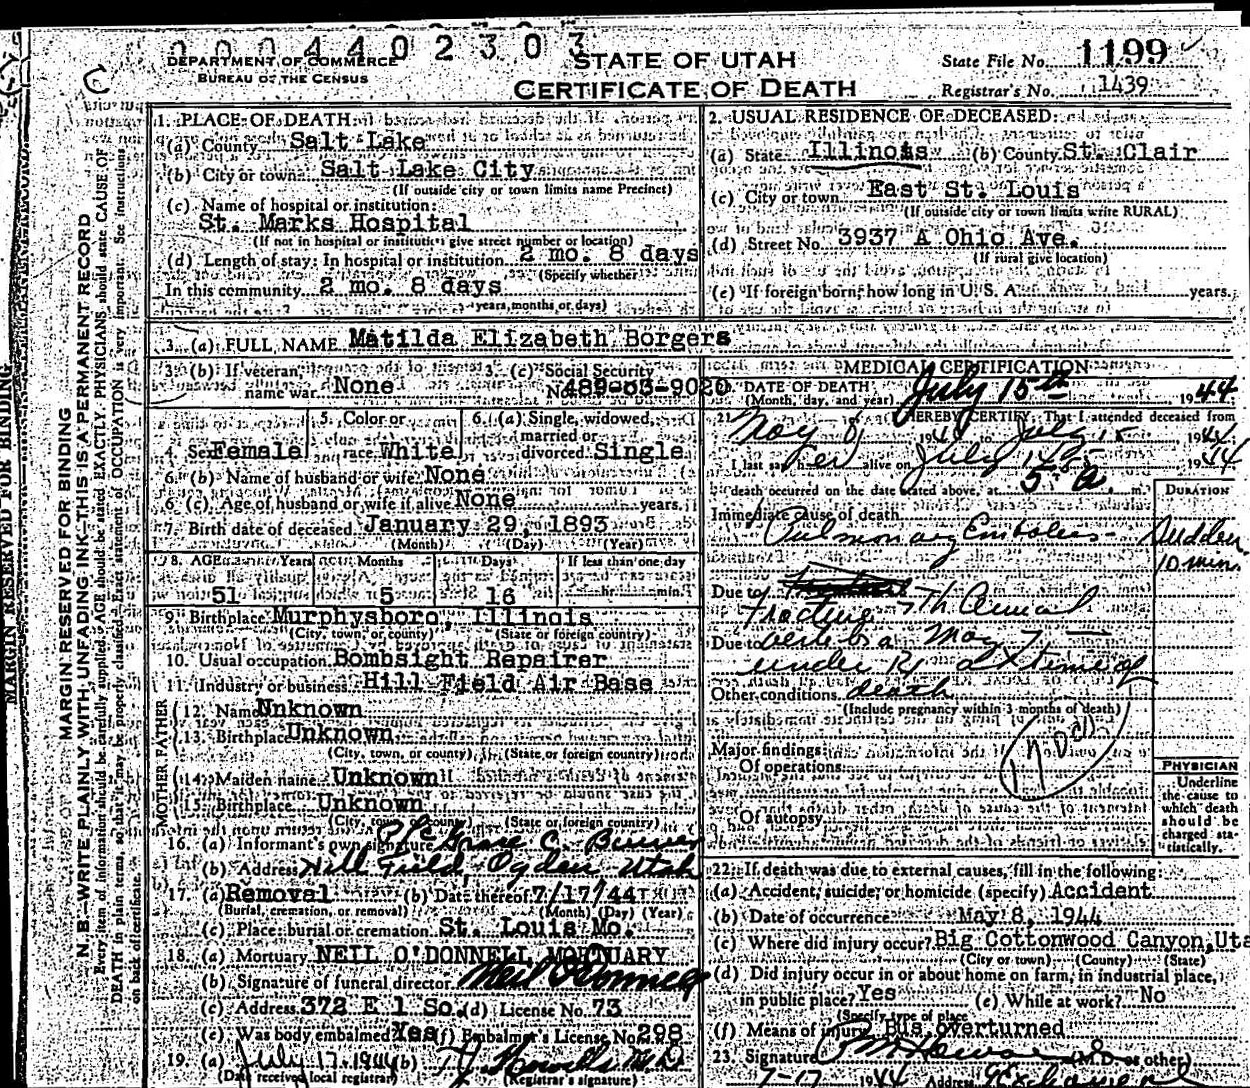 0 0 0 4 4 0 2 3 0 3
DEPARTMENT OF COMMERCE
BUREAU OF THE CENSUS
STATE OF UTAH
CERTIFICATE OF DEATH
State File No. 1199
Registrar's No. 1439
MARGIN RESERVED FOR BINDING
MARGIN RESERVED FOR BINDING
N. B.—WRITE PLAINLY WITH UNFADING INK—THIS IS A PERMANENT RECORD
Every item of information should be carefully supplied. AGE should be stated EXACTLY. PHYSICIANS should state CAUSE OF
DEATH in plain terms, so that it may be properly classified. Exact statement of OCCUPATION is very important. See instructions
on back of certificate.
1. PLACE OF DEATH:
(a) County Salt Lake
(b) City or town Salt Lake City
(If outside city or town limits name Precinct)
(c) Name of hospital or institution:
St. Marks Hospital
(If not in hospital or institution give street number or location)
(d) Length of stay: In hospital or institution 2 mo. 8 days
(Specify whether
In this community 2 mo. 8 days
years, months, or days)
2. USUAL RESIDENCE OF DECEASED:
(a) State Illinois (b) County St. Clair
(c) City or town East St. Louis
(If outside city or town limits write RURAL)
(d) Street No. 3937 A Ohio Ave.
(If rural give location)
(e) If foreign born, how long in U. S. A. years.
3. (a) FULL NAME Matilda Elizabeth Borgers
3. (b) If veteran, name war None
3. (c) Social Security No. 489-03-9020
4. Sex Female
5. Color or race White
6. (a) Single, widowed, married or divorced Single
6. (b) Name of husband or wife None
6. (c) Age of husband or wife if alive None years
7. Birth date of deceased January 29, 1893
(Month) (Day) (Year)
8. AGE Years Months Days If less than one day
51 5 16 hr. min.
9. Birthplace Murphysboro, Illinois
(City, town, or county) (State or foreign country)
10. Usual occupation Bombsight Repairer
11. Industry or business Hill Field Air Base
FATHER
12. Name Unknown
13. Birthplace Unknown
(City, town, or county) (State or foreign country)
MOTHER
14. Maiden name Unknown
15. Birthplace Unknown
(City, town or county) (State or foreign country)
16. (a) Informant's own signature Grace C.
(b) Address Hill Field, Ogden, Utah
17. (a) Removal (b) Date thereof 7/17/44
(Burial, cremation, or removal) (Month) (Day) (Year)
(c) Place: burial or cremation St. Louis Mo.
18. (a) Mortuary NEIL O'DONNELL MORTUARY
(b) Signature of funeral director Neil O'Donnell
(c) Address 372 E 1 So. (d) License No. 73
(e) Was body embalmed Yes (f) Embalmer's License No. 298
19. (a) July 17-1944 (b) M.D.
(Date received local registrar) (Registrar's signature)
MEDICAL CERTIFICATION
20. DATE OF DEATH July 15th 1944
(Month, day, and year)
21. I HEREBY CERTIFY, That I attended deceased from
May 8 1944 to July 15 1944
I last saw her alive on July 1944
death occurred on the date stated above, at 5 a m.
DURATION
Immediate cause of death
Pulmonary Embolus Sudden
10 min.
Due to
Fracture 7th
Due to May 7
under Rx at time of
Other conditions death
(Include pregnancy within 3 months of death)
Major findings:
Of operations
Of autopsy
PHYSICIAN
Underline
the cause to
which death
should be
charged sta-
tistically.
22. If death was due to external causes, fill in the following:
(a) Accident, suicide, or homicide (specify) Accident
(b) Date of occurrence May 8, 1944
(c) Where did injury occur? Big Cottonwood Canyon, Uta
(City or town) (County) (State)
(d) Did injury occur in or about home on farm, in industrial place,
in public place? Yes (e) While at work? No
(Specify type of place
(f) Means of injury Bus overturned
23. Signature (M.D. or other)
7-17 1944 Address